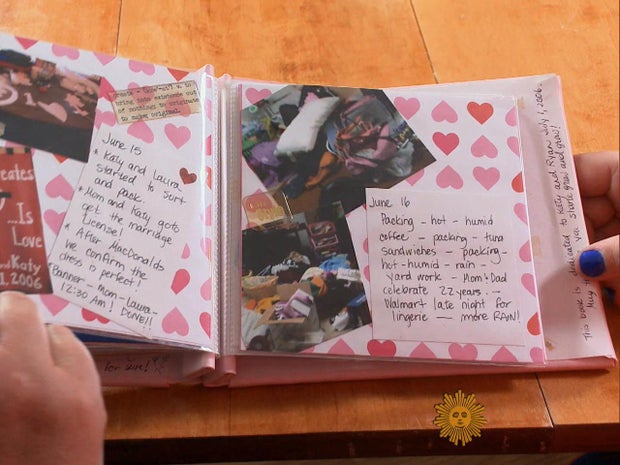 create - (kre-at') v. to
bring into existence out
of nothing; to originate
to cause
eates
...Is
Love
and Katy
1.2006
June 15
* Katy and Laura
started to sort
and pack.
* Mom and Katy gots
get the marriage
License!
* After MacDonalds
we confirm the
dress is perfect!
(Banner - mom - Laura -
12:30 Am! DONE!!
for sure!
June 16
Packing - hot - humid
coffee - packing - tuna
sandwiches - packing -
hot - humid - rain -
yard work - Mom & Dad
celebrate 22 years. -
Walmart late night for
lingerie - more RAIN!
This book is dedicated to Katy and Ryan July 1, 2006.
May you share grow and grow!